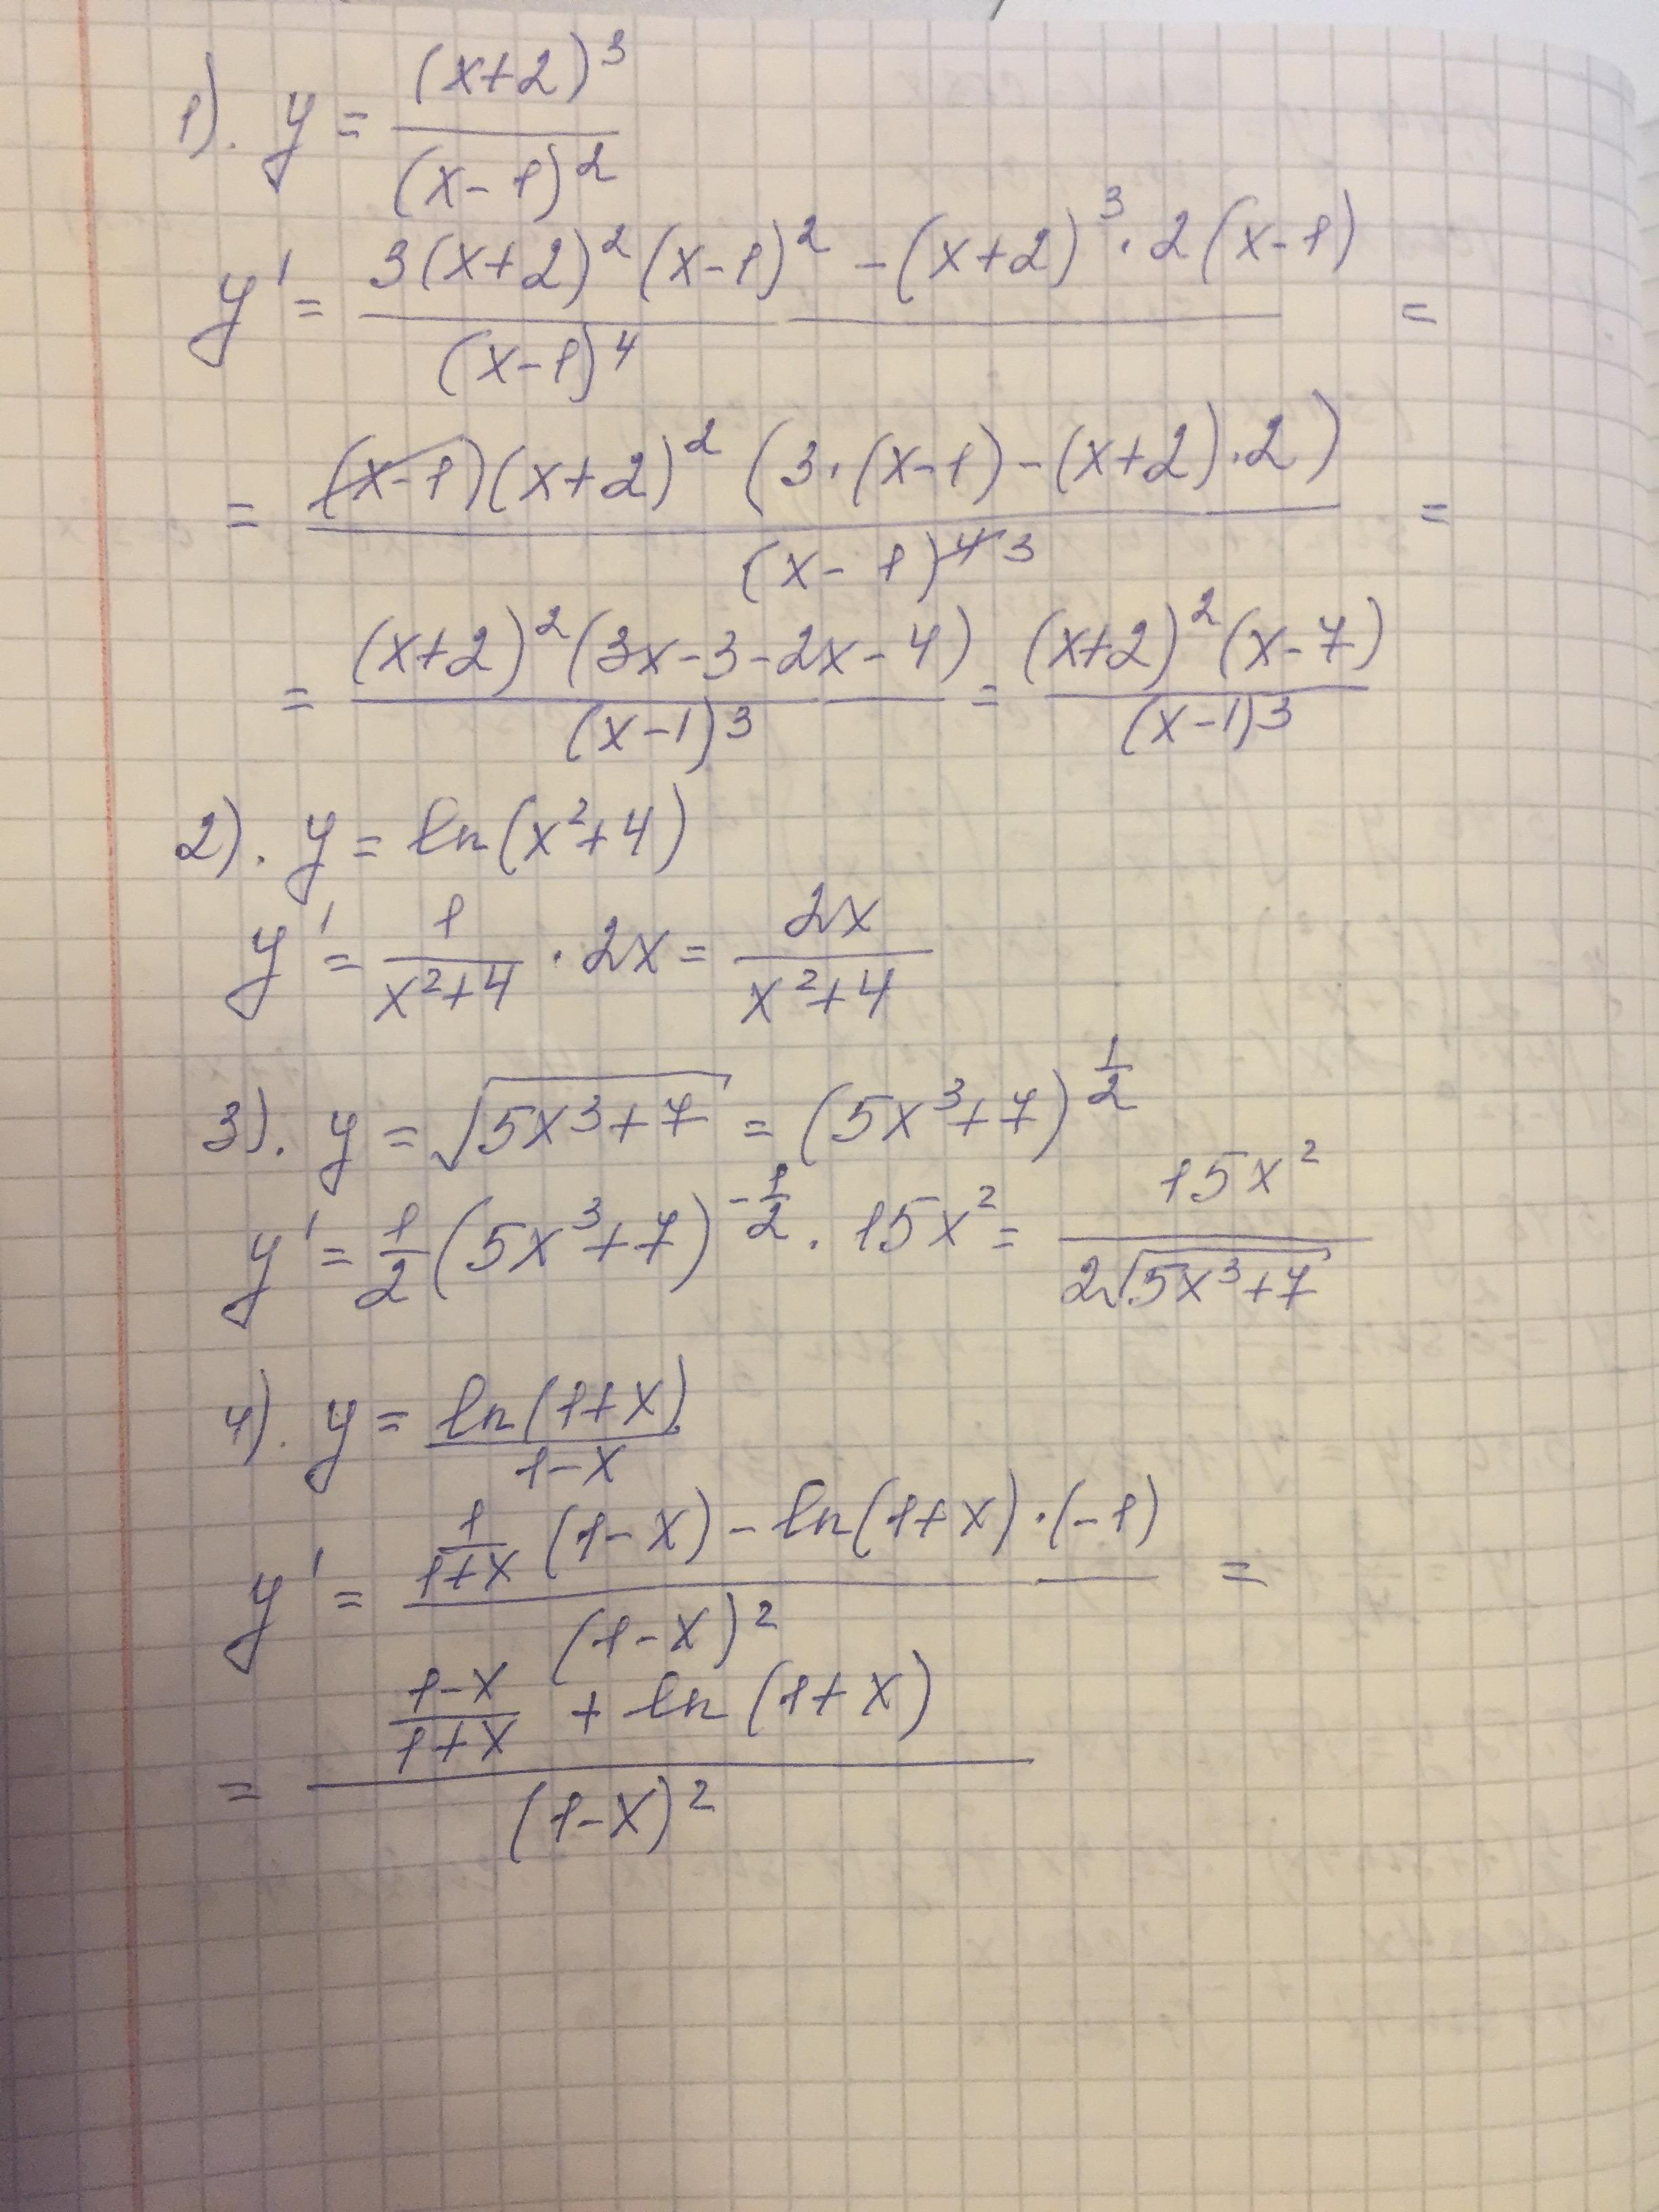 1). y = (x+2)³ / (x-1)²
y' = (3(x+2)²(x-1)² - (x+2)³ · 2(x-1)) / (x-1)⁴ =
= ((x-1)(x+2)² (3·(x-1) - (x+2)·2)) / (x-1)⁴ ³ =
= ((x+2)²(3x-3-2x-4)) / (x-1)³ = ((x+2)²(x-7)) / (x-1)³
2). y = ln(x²+4)
y' = 1/(x²+4) · 2x = 2x/(x²+4)
3). y = √(5x³+7) = (5x³+7)^(1/2)
y' = 1/2 (5x³+7)^(-1/2) · 15x² = 15x² / (2√(5x³+7))
4). y = ln(1+x) / (1-x)
y' = (1/(1+x) (1-x) - ln(1+x)·(-1)) / (1-x)² =
= ((1-x)/(1+x) + ln(1+x)) / (1-x)²